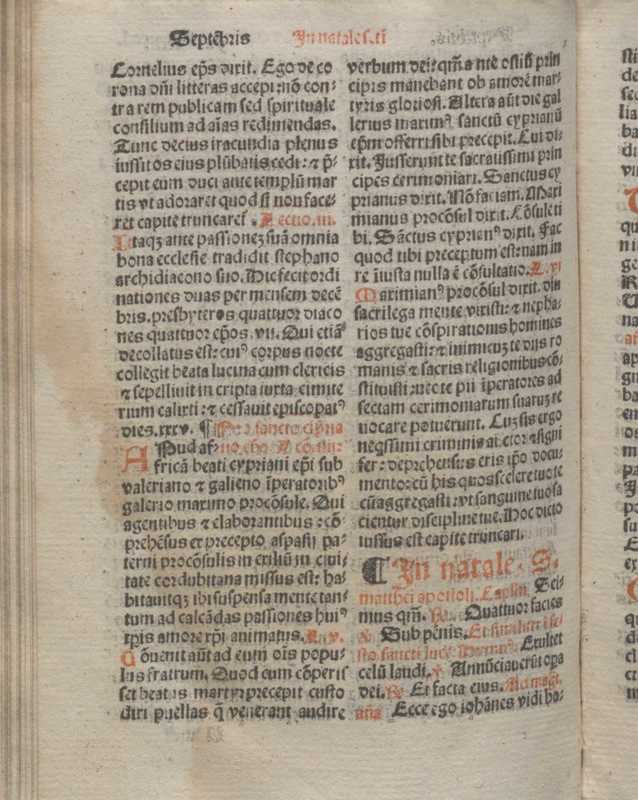 Septẽbris In natale s. ti
Cornelius ep̃s dixit. Ego de co
rona dñi litteras accepi: nõ con⸗
tra rem publicam sed spirituale
consilium ad aĩas redimendas.
Tunc decius iracundia plenus
iussit os eius plũbatis cedi: ⁊ p̃⸗
cepit eum duci ante templũ mar
tis vt adoraret quod si non face⸗
ret capite truncareť. Lectio. iii.
Itaqꝫ ante passionez suã omnia
bona ecclesie tradidit stephano
archidiacono suo. Hic fecit ordi
nationes duas per mensem decẽ
bris. presbyteros quattuor diaco
nes quattuor ep̃os. vii. Qui etiã
decollatus est: cuiꝰ corpus nocte
collegit beata lucina cum clericis
⁊ sepelliuit in cripta iuxta cimite
rium calixti: ⁊ cessauit episcopatꝰ
dies. xxxv. ¶ Pro sancto cipria
APud af⸗ no
fricã beati cypriani ep̃i sub
valeriano ⁊ galieno ĩperatoribꝰ
galerio maximo procõsule. Qui
agentibus ⁊ elaborantibus: cõ⸗
prehẽsus ex precepto aspasii pa⸗
terni procõsulis in exiliũ in ciui⸗
tate cordubitana missus est: ha⸗
bitauitqꝫ ibi suspensa mente tan⸗
tum ad calcẽdas passiones huiꝰ
xp̃i animatus. v.
Cõuenit aũt ad eum oĩs popu⸗
lus fratrum. Quod cum cõperis
set beatus martyr precepit custo
diri puellas q̃ venerant audire
verbum dei: qm̃ ante ostiũ prin
cipis manebant ob amorẽ mar⸗
tyris gloriosi. Altera aũt die gal
lerius maximꝰ sanctũ cyprianũ
ep̃m offerri sibi precepit. Cui di⸗
xit. Iusserunt te sacratissimi prin
cipes cerimoniari. Sanctus cy
prianus dixit. Nõ faciam. Maxi
mianus procõsul dixit. Cõsule ti
bi. Sãctus cyprianꝰ dixit. Fac
quod tibi preceptum est: nam in
re iĩusta nulla ẽ cõsultatio. L. vi
Maximianꝰ procõsul dixit. Diu
sacrilega mente vixisti: ⁊ nepha⸗
rios tue cõspirationis homines
aggregasti: ⁊ inimicuz te diis ro
manis ⁊ sacris religionibus cõ⸗
stituisti: nec te pii ĩperatores ad
sectam cerimoniarum suaruz re
uocare potuerunt. Cuz sis ergo
neq̃ssimi criminis auctor ⁊ signi
fer: deprehensus eris ip̃o docu⸗
mento: cũ his quos scelere tuo te
cũ aggregasti: vt sanguine tuo sa
cientur discipline tue. Hoc dicto
iussus est capite truncari.
¶ In natale. S.
matthei apostoli. Sci⸗
mus qm̃. Quattuor facies
Sub pẽnis.
Exultet
celũ laudi. ℣ Annũciauerũt opa
dei. ℟ Et facta eius.
aña Ecce ego iohãnes vidi ho⸗